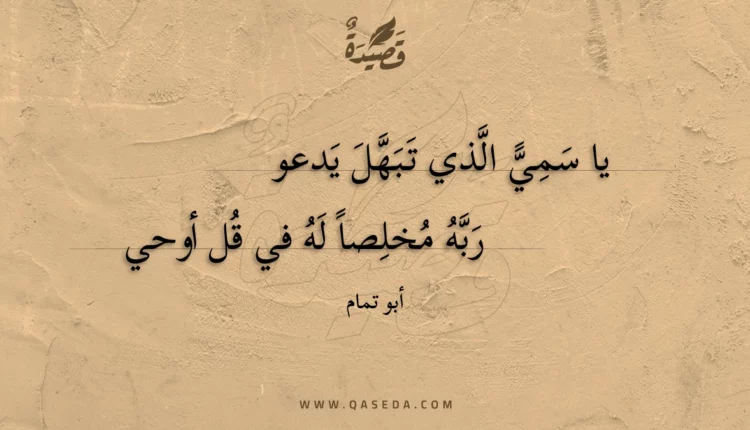 قَصِيدَةٌ
يا سَمِيًّ الَّذي تَبَهَّلَ يَدعو
رَبَّهُ مُخلِصاً لَهُ في قُل أوحي
أبو تمام
WWW.QASEDA.COM